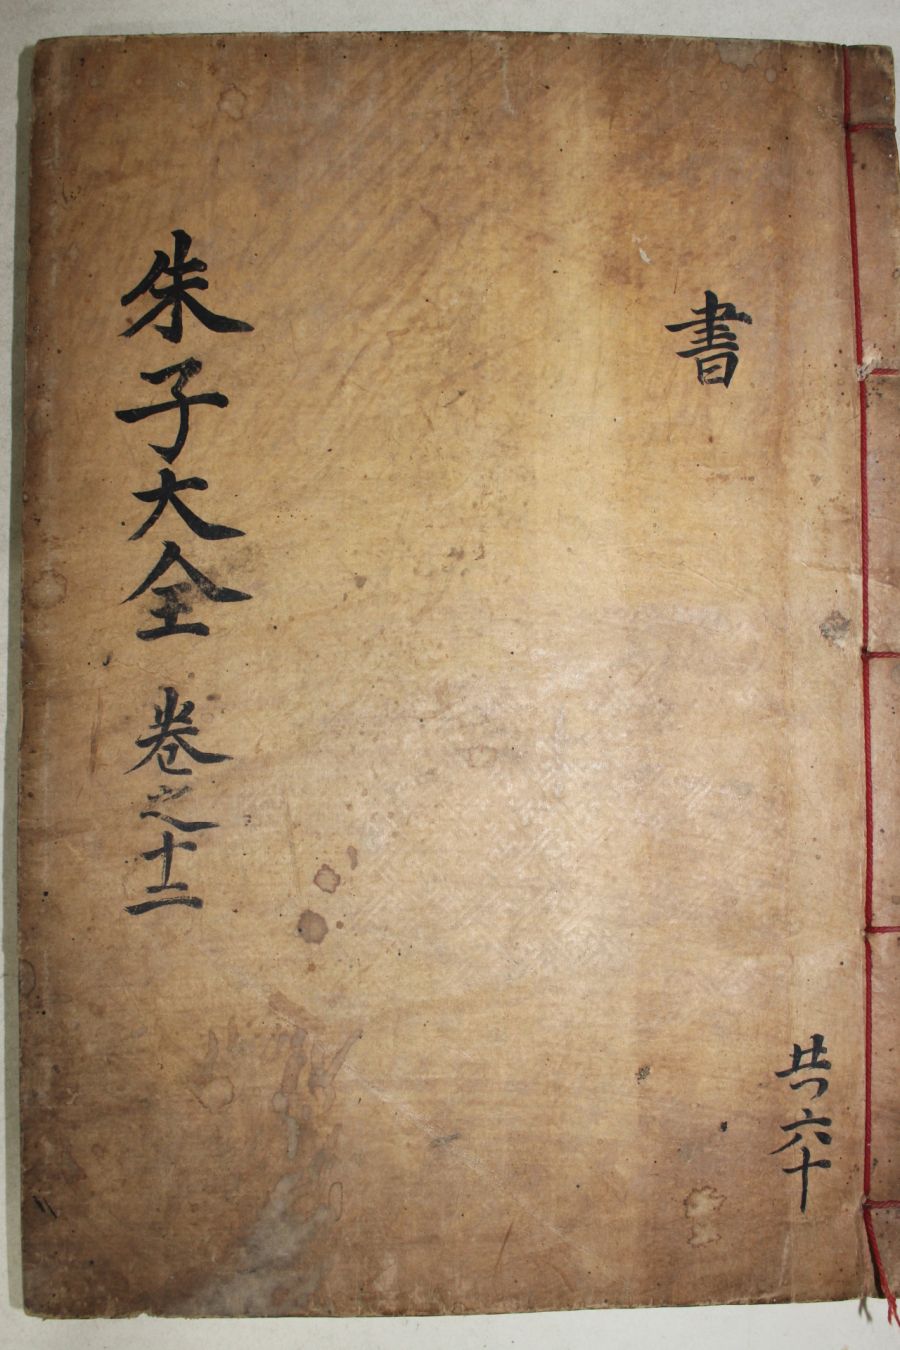 書
共六十
朱子大全 卷之十二